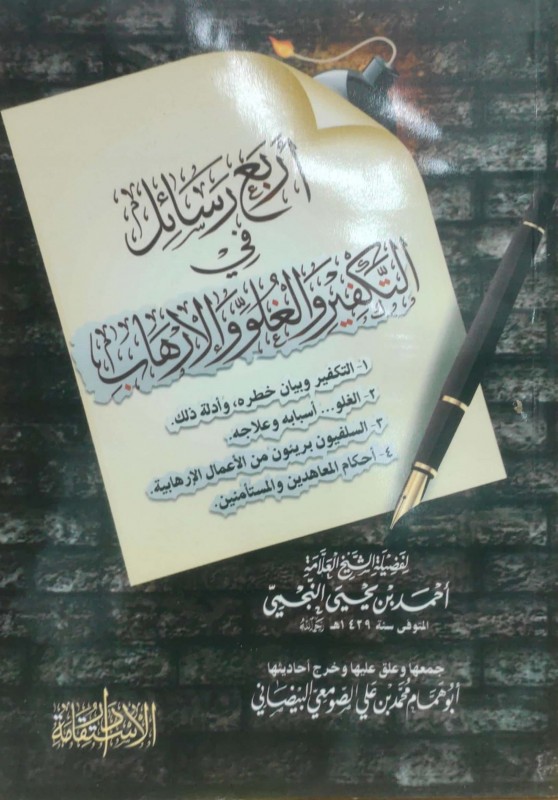 أربع رسائل
في
التكفير والغلو والإرهاب
١- التكفير وبيان خطره، وأدلة ذلك.
٢- الغلو... أسبابه وعلاجه.
٣- السلفيون بريئون من الأعمال الإرهابية.
٤- أحكام المعاهدين والمستأمنين.
لفضيلة الشيخ العلامة
أحمد بن يحيى النجمي
المتوفى سنة ١٤٢٩هـ رحمه الله
جمعها وعلق عليها وخرج أحاديثها
أبو همام محمد بن علي الصومعي البيضاني